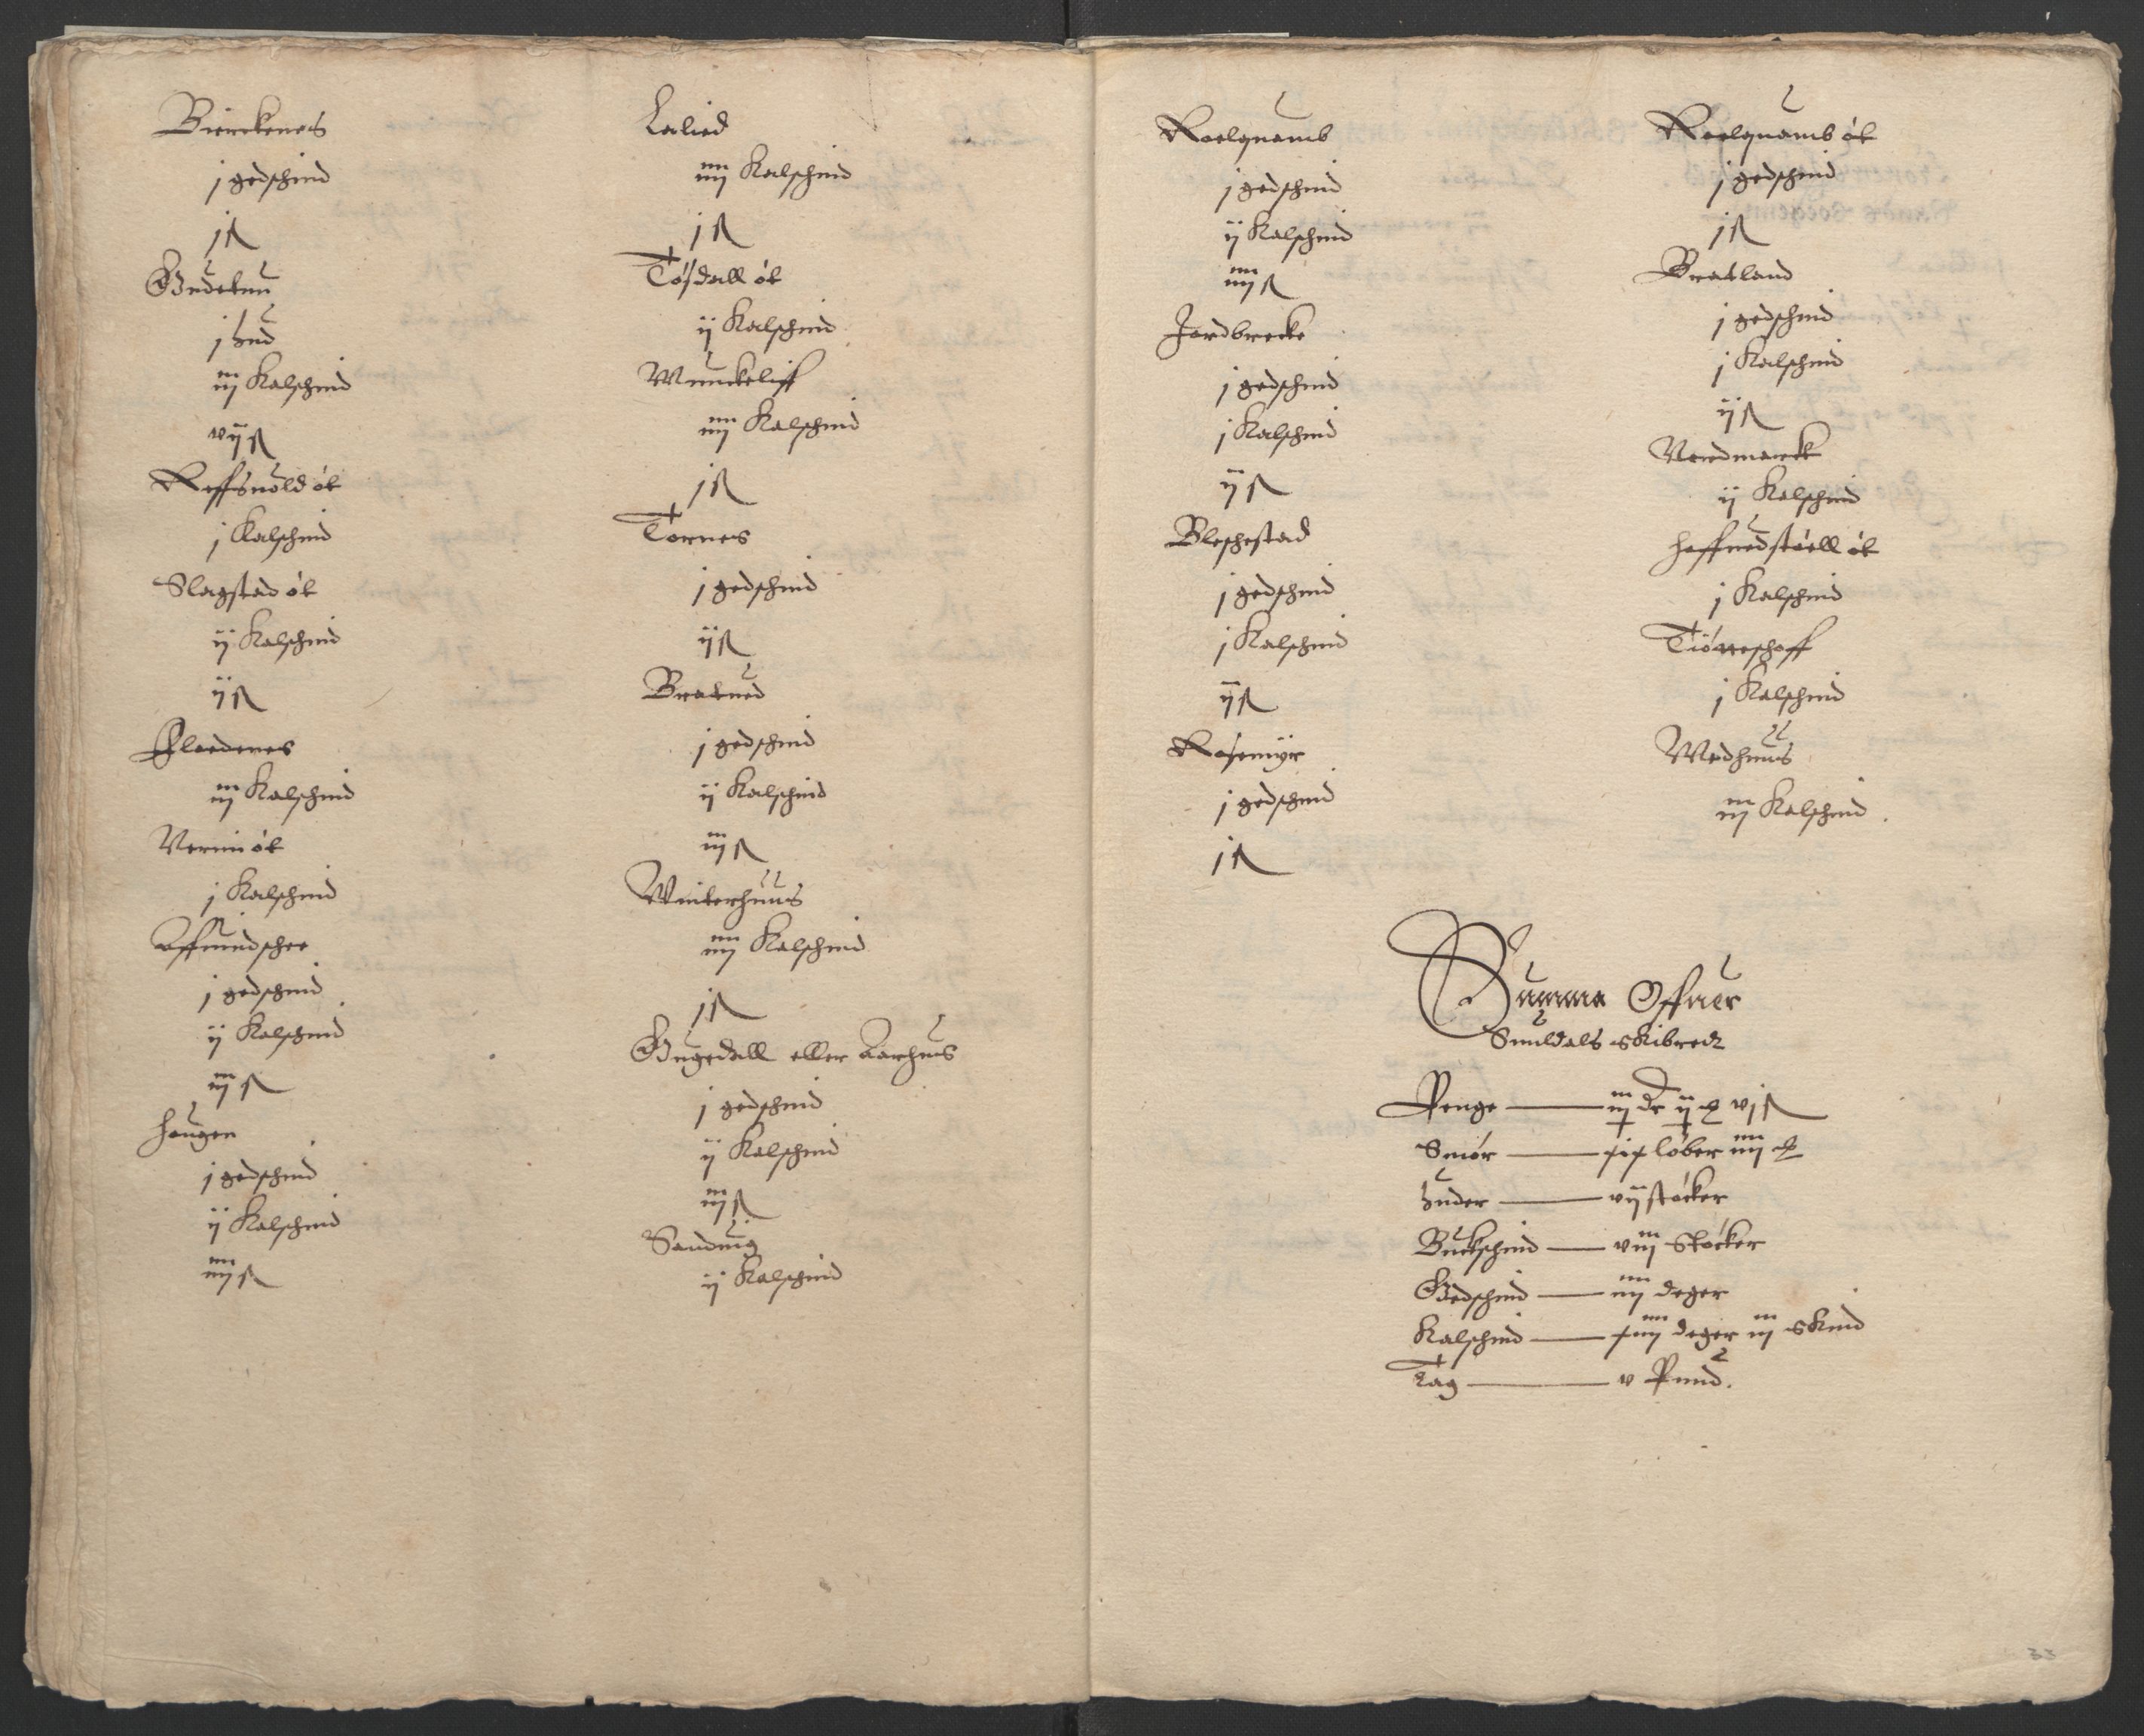 Bierckenes
j gedschind
j ß
Gudetun
j hud
iij Kalschind
vij ß
Reffsuold øt
j Kalschind
Slagstad øt
ij Kalschind
ij ß
Floedenes
iij Kalschind
Vermi øt
j Kalschind
Affuindschee
j gedschind
ij Kalschind
iij ß
Haugen
j gedschind
ij Kalschind
iiij ß
Lalied
iiij Kalschind
j ß
Tøsdall øt
ij Kalschind
Wunckeliff
iiij Kalschind
j ß
Tornes
j gedschind
ij ß
Bratued
j gedschind
ij Kalschind
iij ß
Winterhuus
iiij Kalschind
j ß
Gugedall eller Aarhus
j gedschind
ij Kalschind
iij ß
Sanduig
ij Kalschind
Roelquamb
j gedschind
ij Kalschind
iiij ß
Jordbrecke
j gedschind
j Kalschind
ij ß
Bleschestad
j gedschind
j Kalschind
ij ß
Rosemyr
j gedschind
j ß
Roelquamb øt
j gedschind
j ß
Bratland
j gedschind
j Kalschind
ij ß
Nordmarck
ij Kalschind
Haffuedstøell øt
j Kalschind
Tiørreschoff
j Kalschind
Medhuus
iij Kalschind
Summa Offuer
Suuldals skibredt
Penge — iij dr ij ß
Smør — løber iiij
Huder — vij støcker
Buckschind — viij Støcker
Gedschind — iiij deger
Kalschind — xiiij deger iij skind
Tag — v Pund.
33